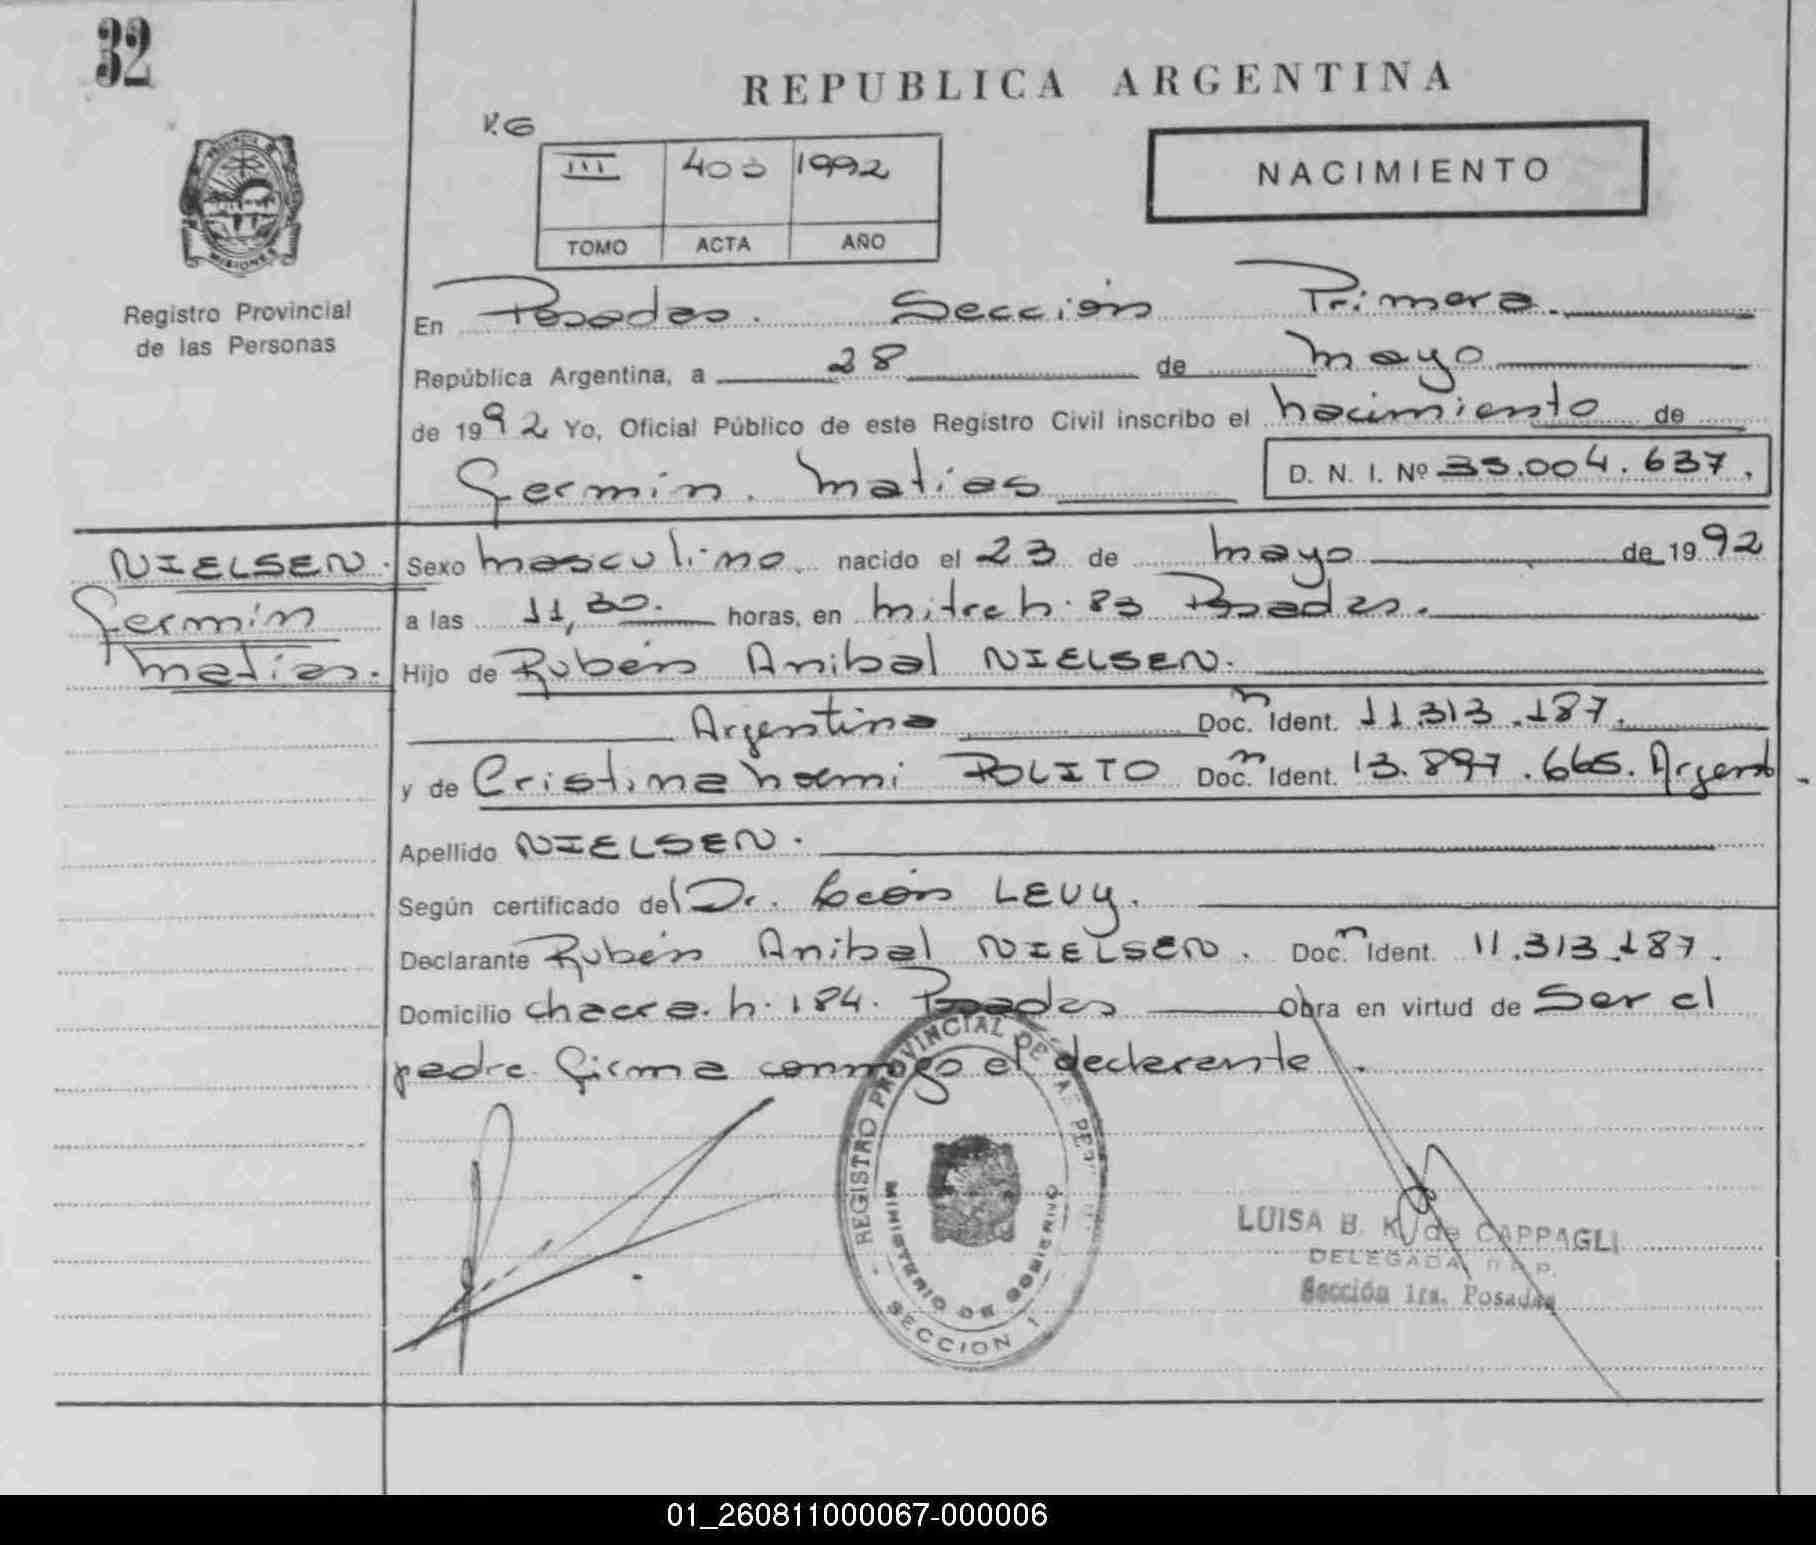 32
REPUBLICA ARGENTINA
K6
III 400 1992
TOMO ACTA AÑO
NACIMIENTO
PROVINCIA DE MISIONES
Registro Provincial
de las Personas
En Posadas. Sección Primera.
República Argentina, a 28 de mayo
de 1992 Yo, Oficial Público de este Registro Civil inscribo el nacimiento de
Germin. Matias D. N. I. Nº 33.004.637.
NIELSEN.
Germin
Matias.
Sexo masculino. nacido el 23 de mayo de 1992
a las 11,30. horas, en Mitre n. 83 Posadas.
Hijo de Rubén Anibal NIELSEN.
Argentino Doc.n Ident. 11.313.187.
y de Cristina Noemi POLITO Doc.n Ident. 13.897.665. Argent.
Apellido NIELSEN.
Según certificado del Dr. León LEVY.
Declarante Rubén Anibal NIELSEN. Doc.n Ident. 11.313.187.
Domicilio chacra. n. 184. Posadas Obra en virtud de Ser el
padre. Firma conmigo el declarante.
REGISTRO PROVINCIAL DE LAS PER
MINISTERIO DE GOBIERNO
SECCION 1
LUISA B. K. de CAPPAGLI
DELEGADA R.P.P.
Sección 1ra. Posadas
01_260811000067-000006